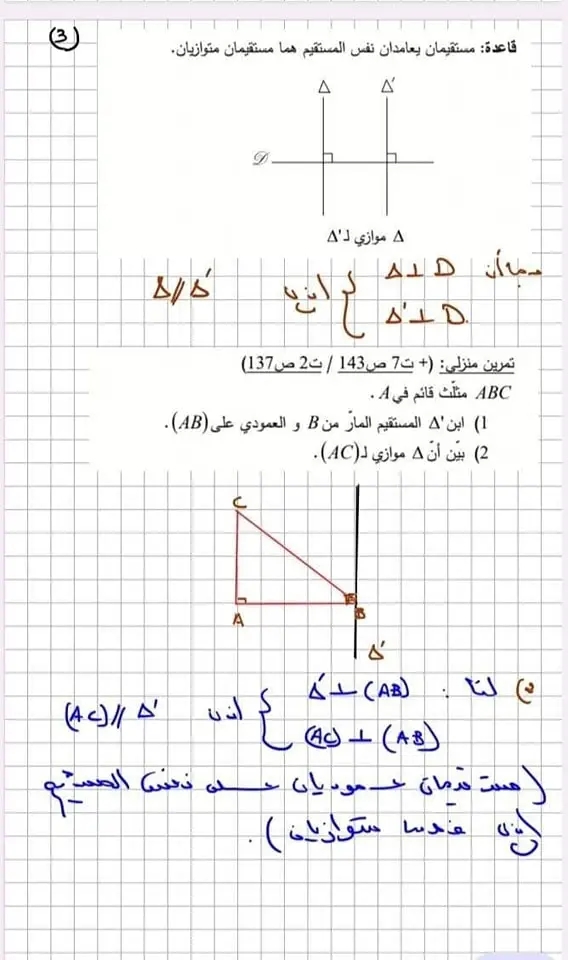 (3)
قاعدة: مستقيمان يعامدان نفس المستقيم هما مستقيمان متوازيان.
Δ Δ'
𝒟
Δ موازي لـ Δ'
بما أن { Δ ⊥ D
Δ' ⊥ D. إذن Δ // Δ'
تمرين منزلي: (+ ت7 ص143 / ت2 ص137)
ABC مثلّث قائم في A .
1) ابن Δ' المستقيم المارّ من B و العمودي على (AB).
2) بيّن أنّ Δ موازي لـ (AC).
C
A B
Δ'
2) لنا : { Δ' ⊥ (AB)
(AC) ⊥ (AB) اذن (AC) // Δ'
(مستقيمان عموديان على نفس المستقيم
إذن هما متوازيان).